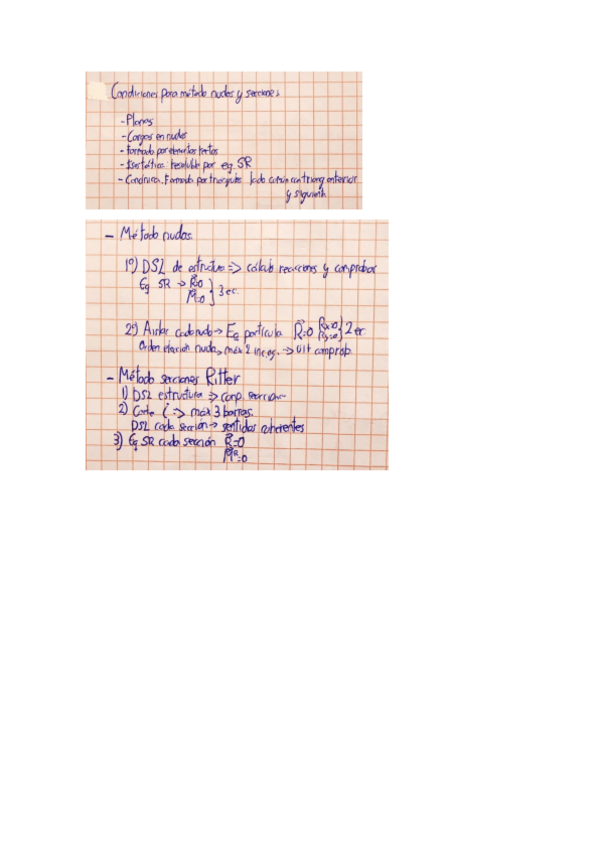 Condiciones para método nudos y secciones
- Planas
- Cargas en nudos
- formado por elementos rectos
- Isostática: resoluble por eq. SR
- Canónica. Formada por triángulos lado común con triang anterior
y siguiente
- Método nudos.
1º) DSL de estructura => cálculo reacciones y comprobar
Eq SR → R=0
M=0 } 3 ec.
2º) Aislar cada nudo → Eq partícula R=0 Rx=0
Ry=0 } 2 ec
Orden elección nudo, máx 2 incog. → últ comprob.
- Método secciones Ritter
1) DSL estructura => comp.
2) Corte i => máx 3 barras.
DSL cada sección → sentidos coherentes
3) Eq SR cada sección R=0
M=0